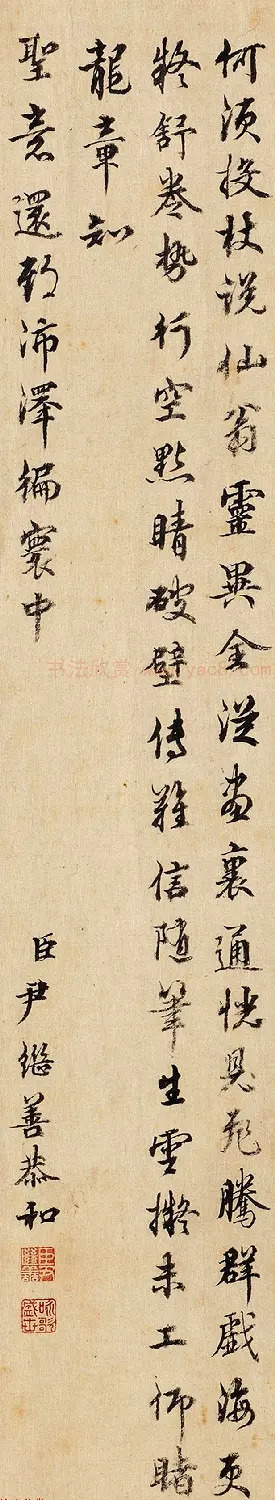 何須投杖説仙翁靈異全從畫裏通恍見飛騰群戲海更
疑舒卷勢行空點睛破壁傳難信隨筆生雲擬未工仰睹
龍章知
聖意還沛澤徧寰中
臣尹繼善恭和
书法欣赏